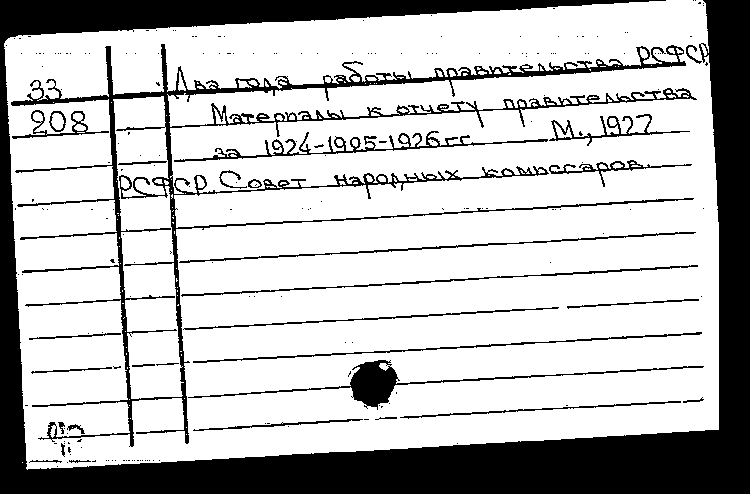 33 Два года работы правительства РСФСР
208 Материалы к отчету правительства
за 1924-1925-1926 гг. М., 1927
РСФСР. Совет народных комиссаров.